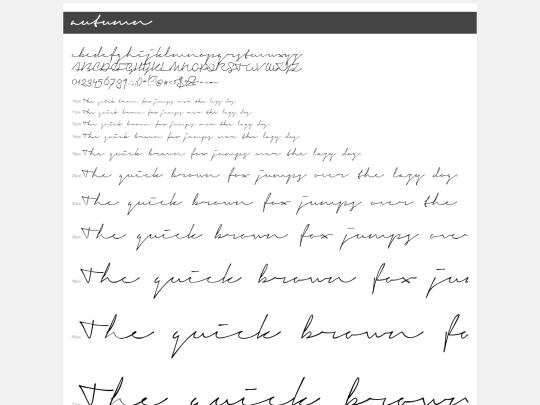 autumn
abcdefghijklmnopqrstuvwxyz
ABCDEFGHIJKLMNOPQRSTUVWXYZ
0123456789
The quick brown fox jumps over the lazy dog
The quick brown fox jumps over the lazy dog
The quick brown fox jumps over the lazy dog
The quick brown fox jumps over the lazy dog
The quick brown fox jumps over the lazy dog
The quick brown fox jumps over the lazy dog
The quick brown fox jumps over the
The quick brown fox jumps ove
The quick brown fox ju
The quick brown fo
The quick brown